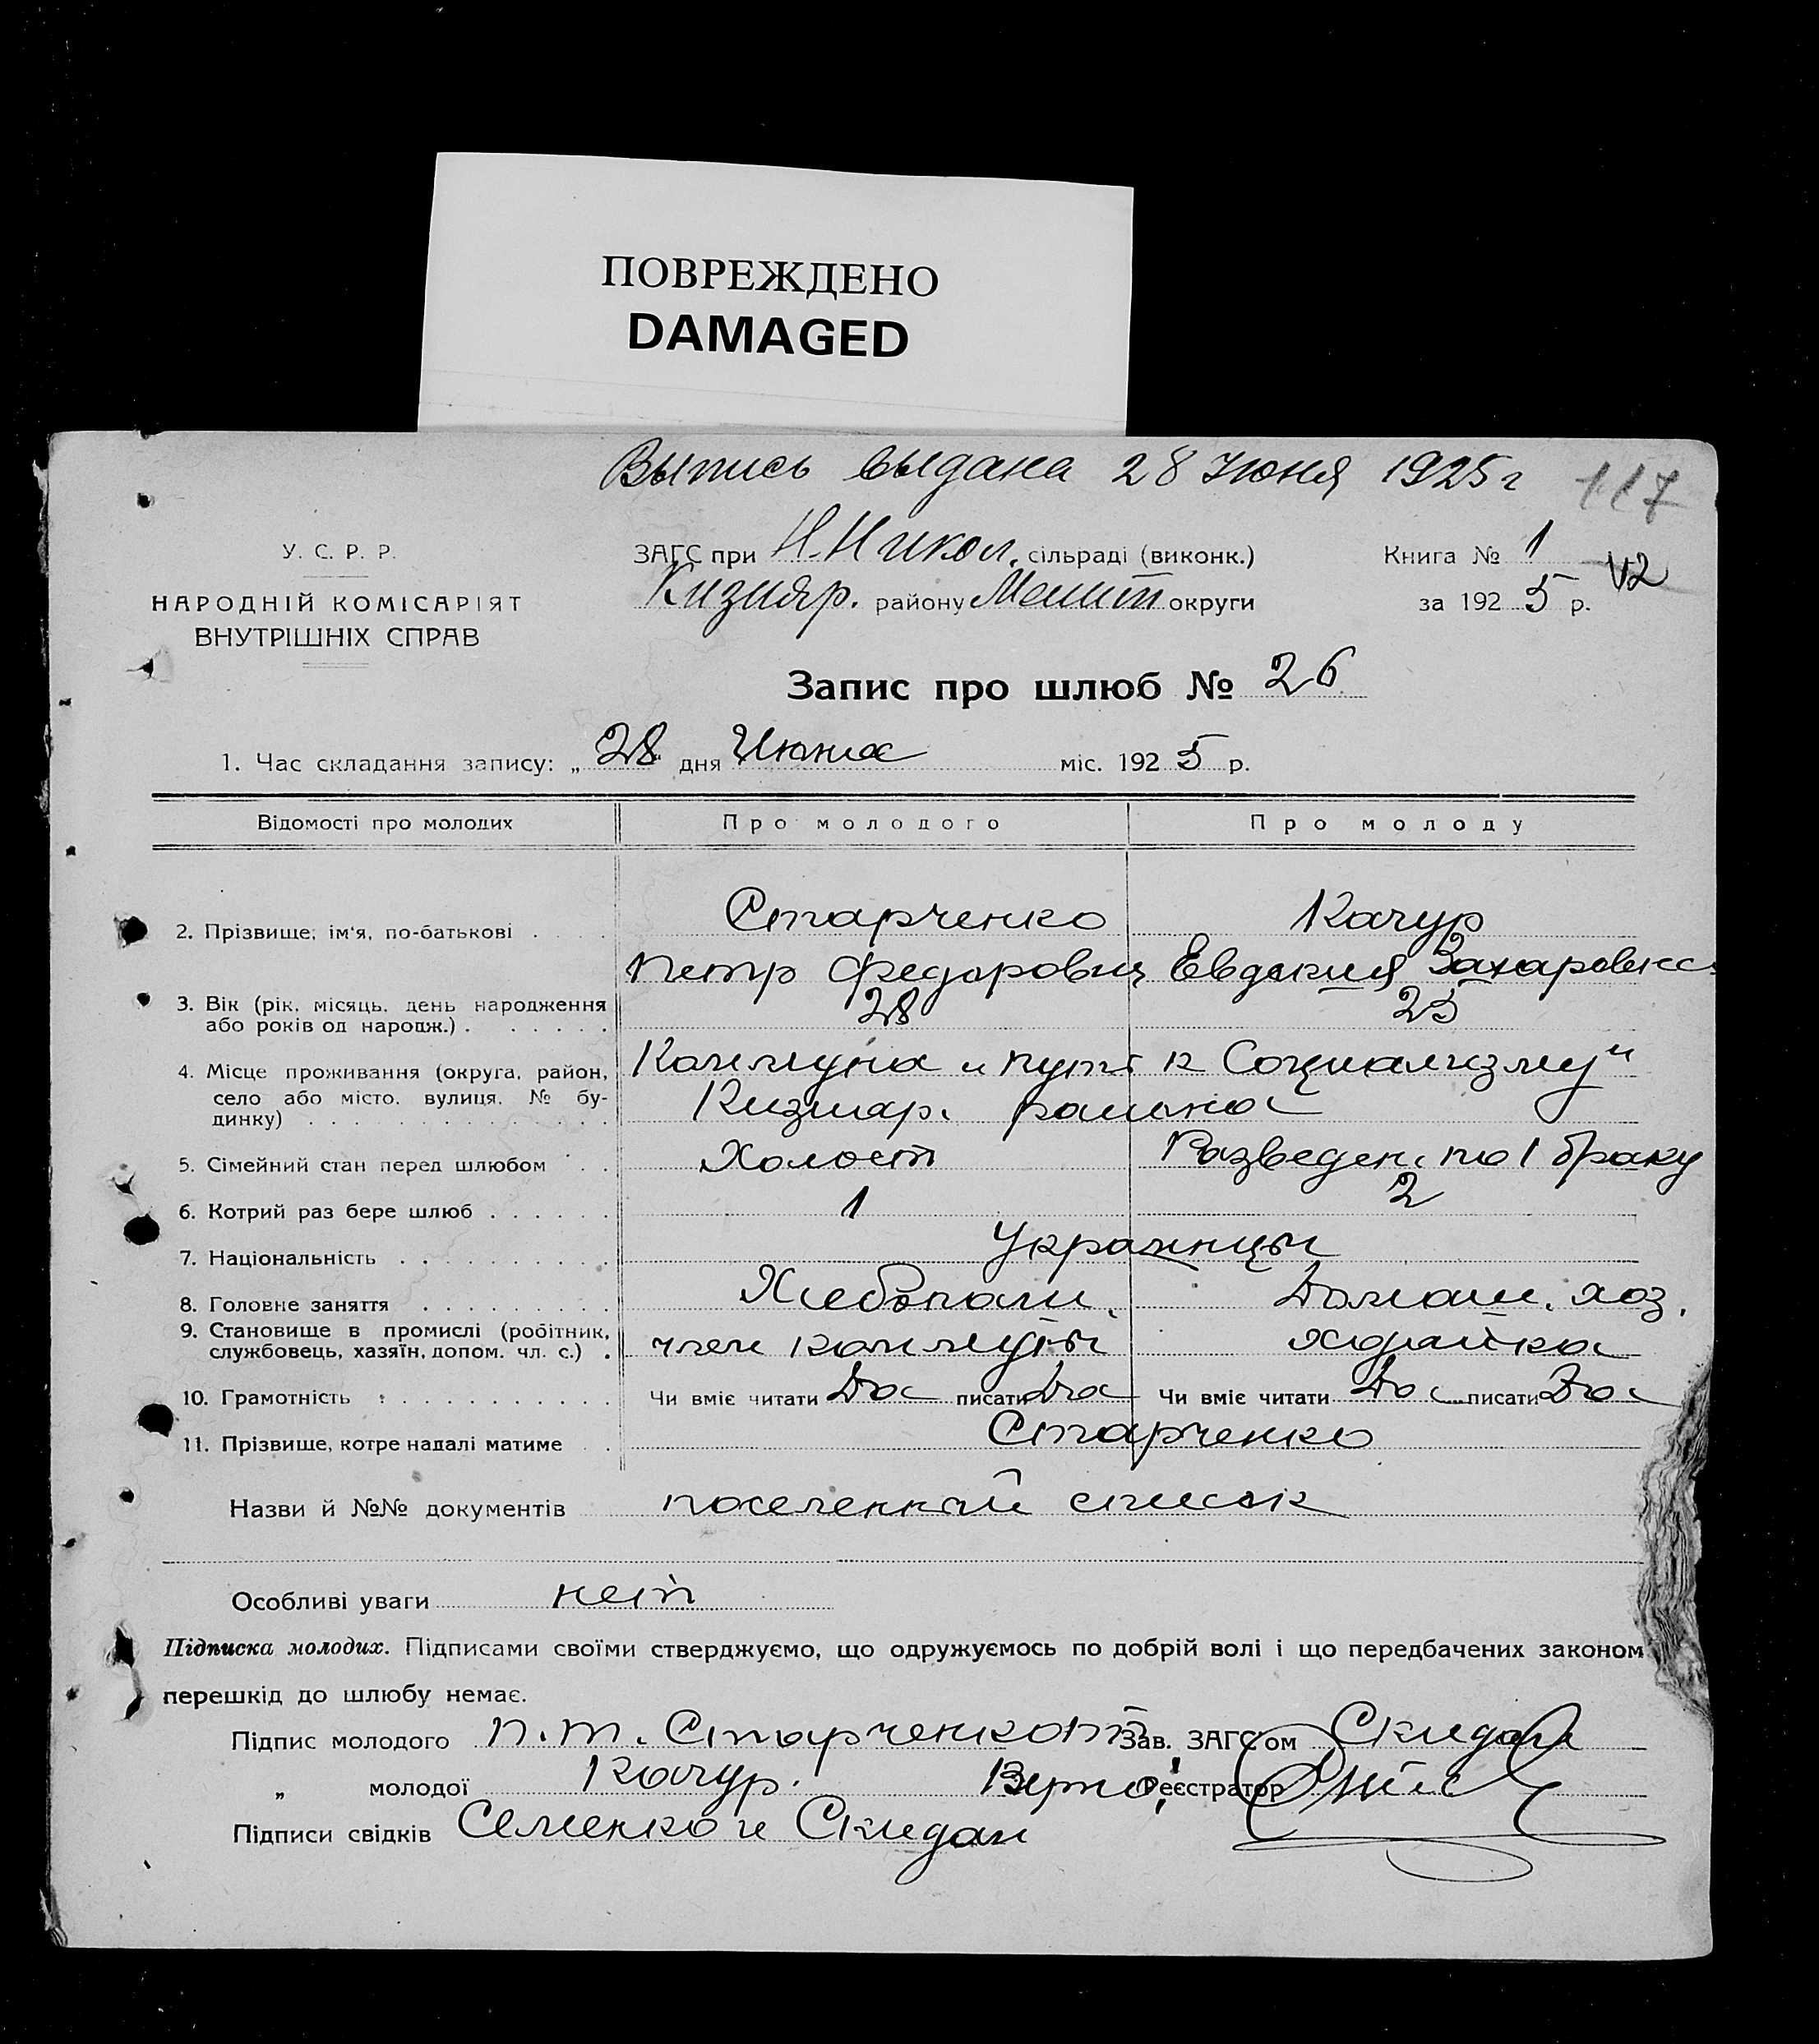 ПОВРЕЖДЕНО
DAMAGED
Выпись выдана 28 Июня 1925 г 117
У. С. Р. Р.
НАРОДНІЙ КОМІСАРІЯТ
ВНУТРІШНІХ СПРАВ
ЗАГС при Н. Никол. сільраді (виконк.)
Кизияр. району Мелит округи
Книга № 1
за 1925 р.
Запис про шлюб № 26
1. Час складання запису: „28" дня Июня міс. 1925 р.
Відомості про молодих Про молодого Про молоду
2. Прізвище, ім'я, по-батькові . Старченко Качур
Петр Федорович Евдокия Захаровна
3. Вік (рік, місяць, день народження або років од народж.) . 28 25
4. Місце проживання (округа, район, село або місто, вулиця, № будинку) Коммуна „Путь к Социализму"
Кизияр. района
5. Сімейний стан перед шлюбом Холост Разведен. по 1 браку
6. Котрий раз бере шлюб 1 2
7. Національність Украинцы
8. Головне заняття Хлебопаш. Домаш. хоз.
9. Становище в промислі (робітник, службовець, хазяїн, допом. чл. с.) . член коммуны хозяйка
10. Грамотність Чи вміє читати Да писати Да Чи вміє читати Да писати Да
11. Прізвище, котре надалі матиме Старченко
Назви й №№ документів поселенный список
Особливі уваги нет
Підписка молодих. Підписами своїми стверджуємо, що одружуємось по добрій волі і що передбачених законом
перешкід до шлюбу немає.
Підпис молодого П. Т. Старченко Зав. ЗАГС'ом Скидан
„ молодої Качур. Верно: Реєстратор
Підписи свідків Семенко и Скидан